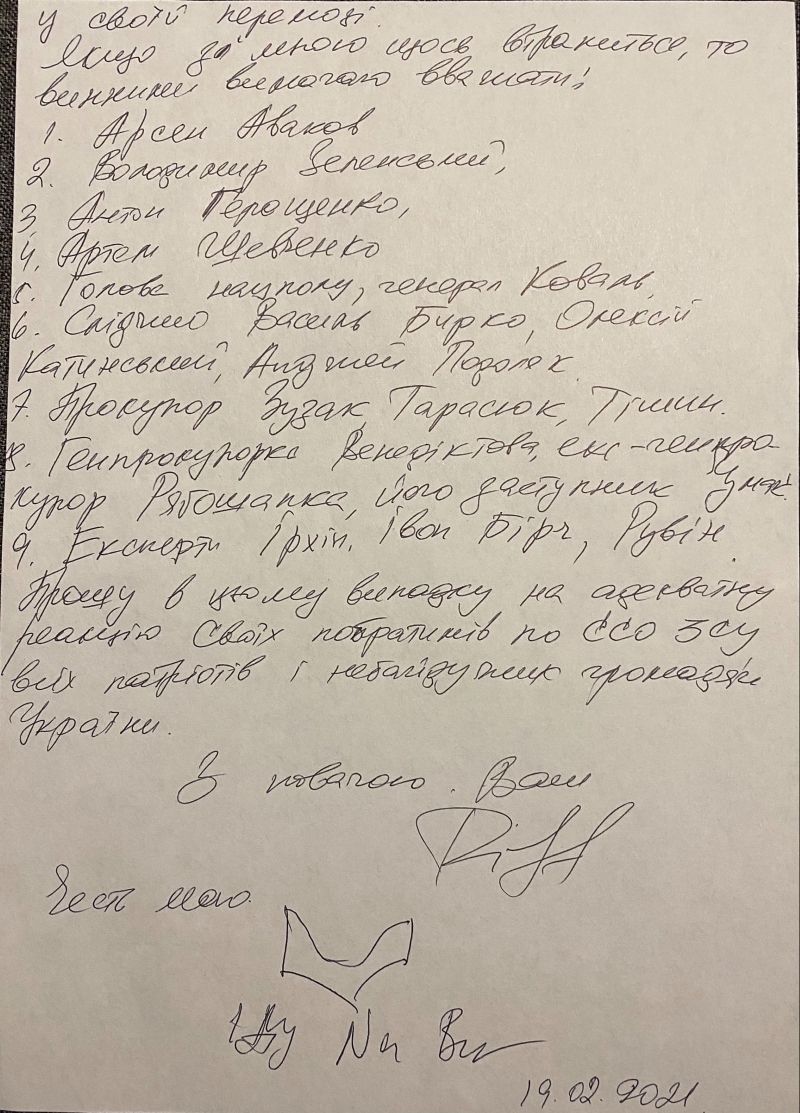 у своїй перемозі.
Якщо зі мною щось втракиться, то
винними вимагаю вважати:
1. Арсен Аваков
2. Володимир Зеленський,
3. Антон Геращенко,
4. Артем Шевченко
5. Голова нацполу, генерал Коваль,
6. Слідчико Василь Бирко, Олексій
Катинський, Анджей Подоляк.
7. Прокурор Зузак, Тарасюк, Тімин.
8. Генпрокурорка Венедіктова, екс-генпро-
курор Рябошапка, його заступник
9. Експерти Ірхін, Івон Бірч, Рувін
Прошу в цьому випадку на адекватну
реакцію своїх побратимів по ССО ЗСУ
всіх патріотів і небайдужих громадян
України.
З повагою. Ваш
Riff
Честь маю.
Йду На Ви
19.02.2021